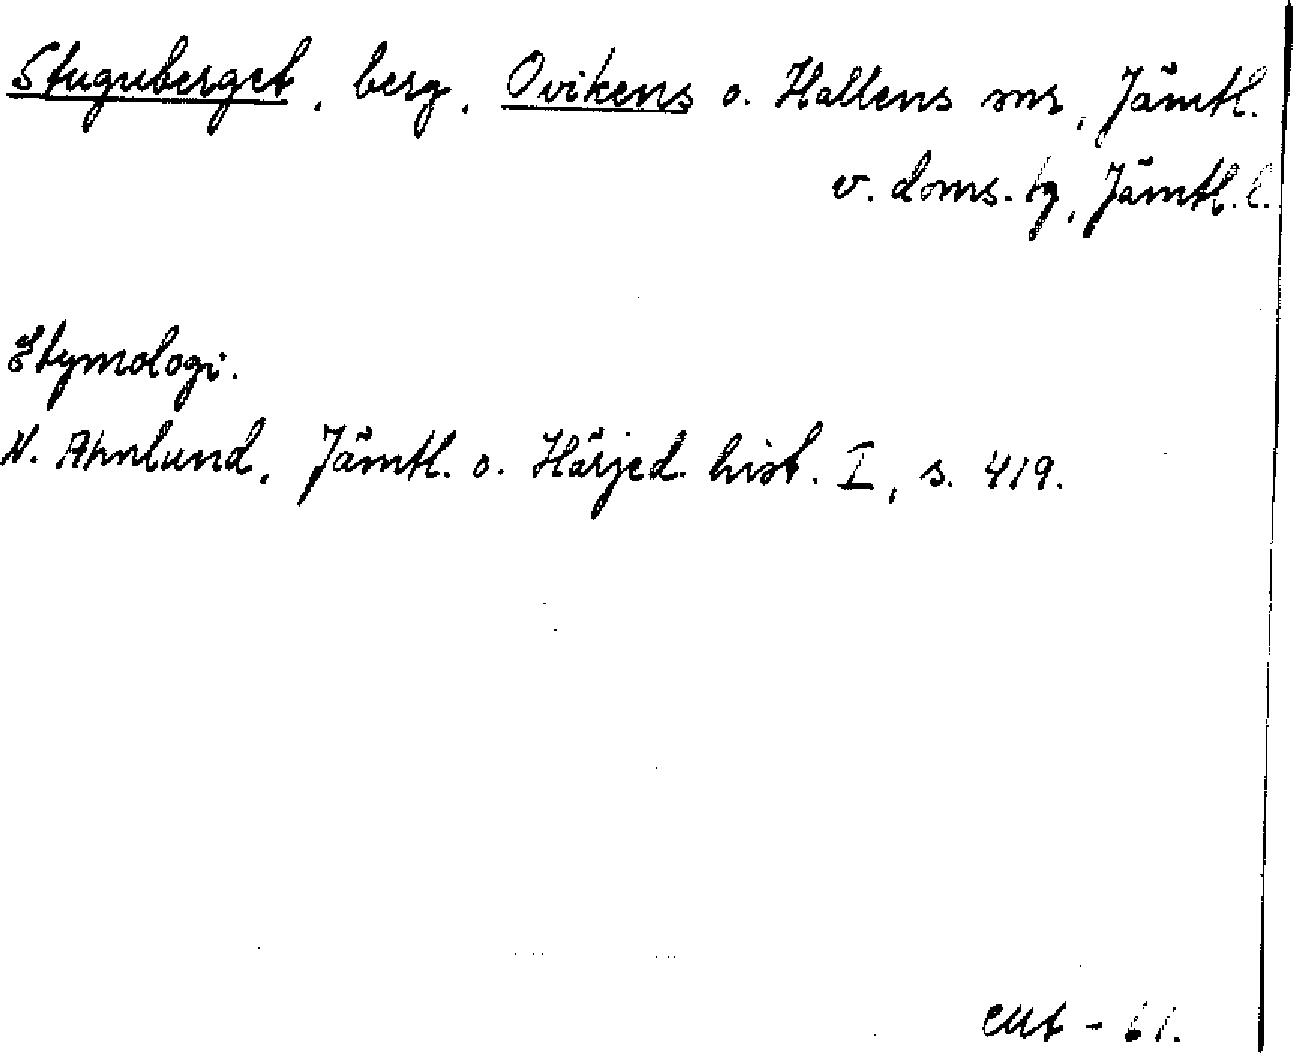 Stuguberget, berg, Ovikens o. Hallens snr, Jämtl.
v. doms. tg, Jämtl. l.
Etymologi.
N. Ahnlund, Jämtl. o. Härjed. hist. I, s. 419.
- 61.